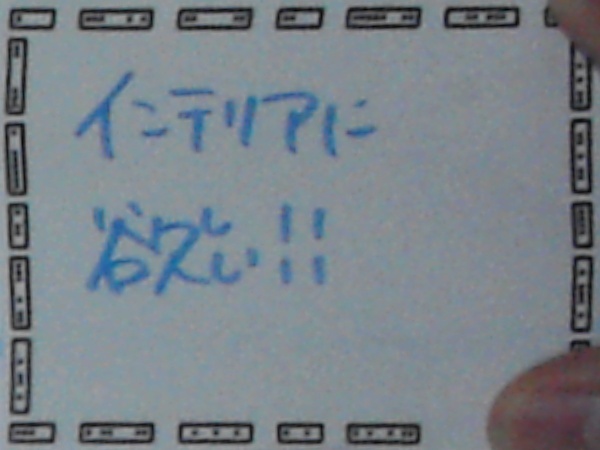 インテリアに
欲しい!!